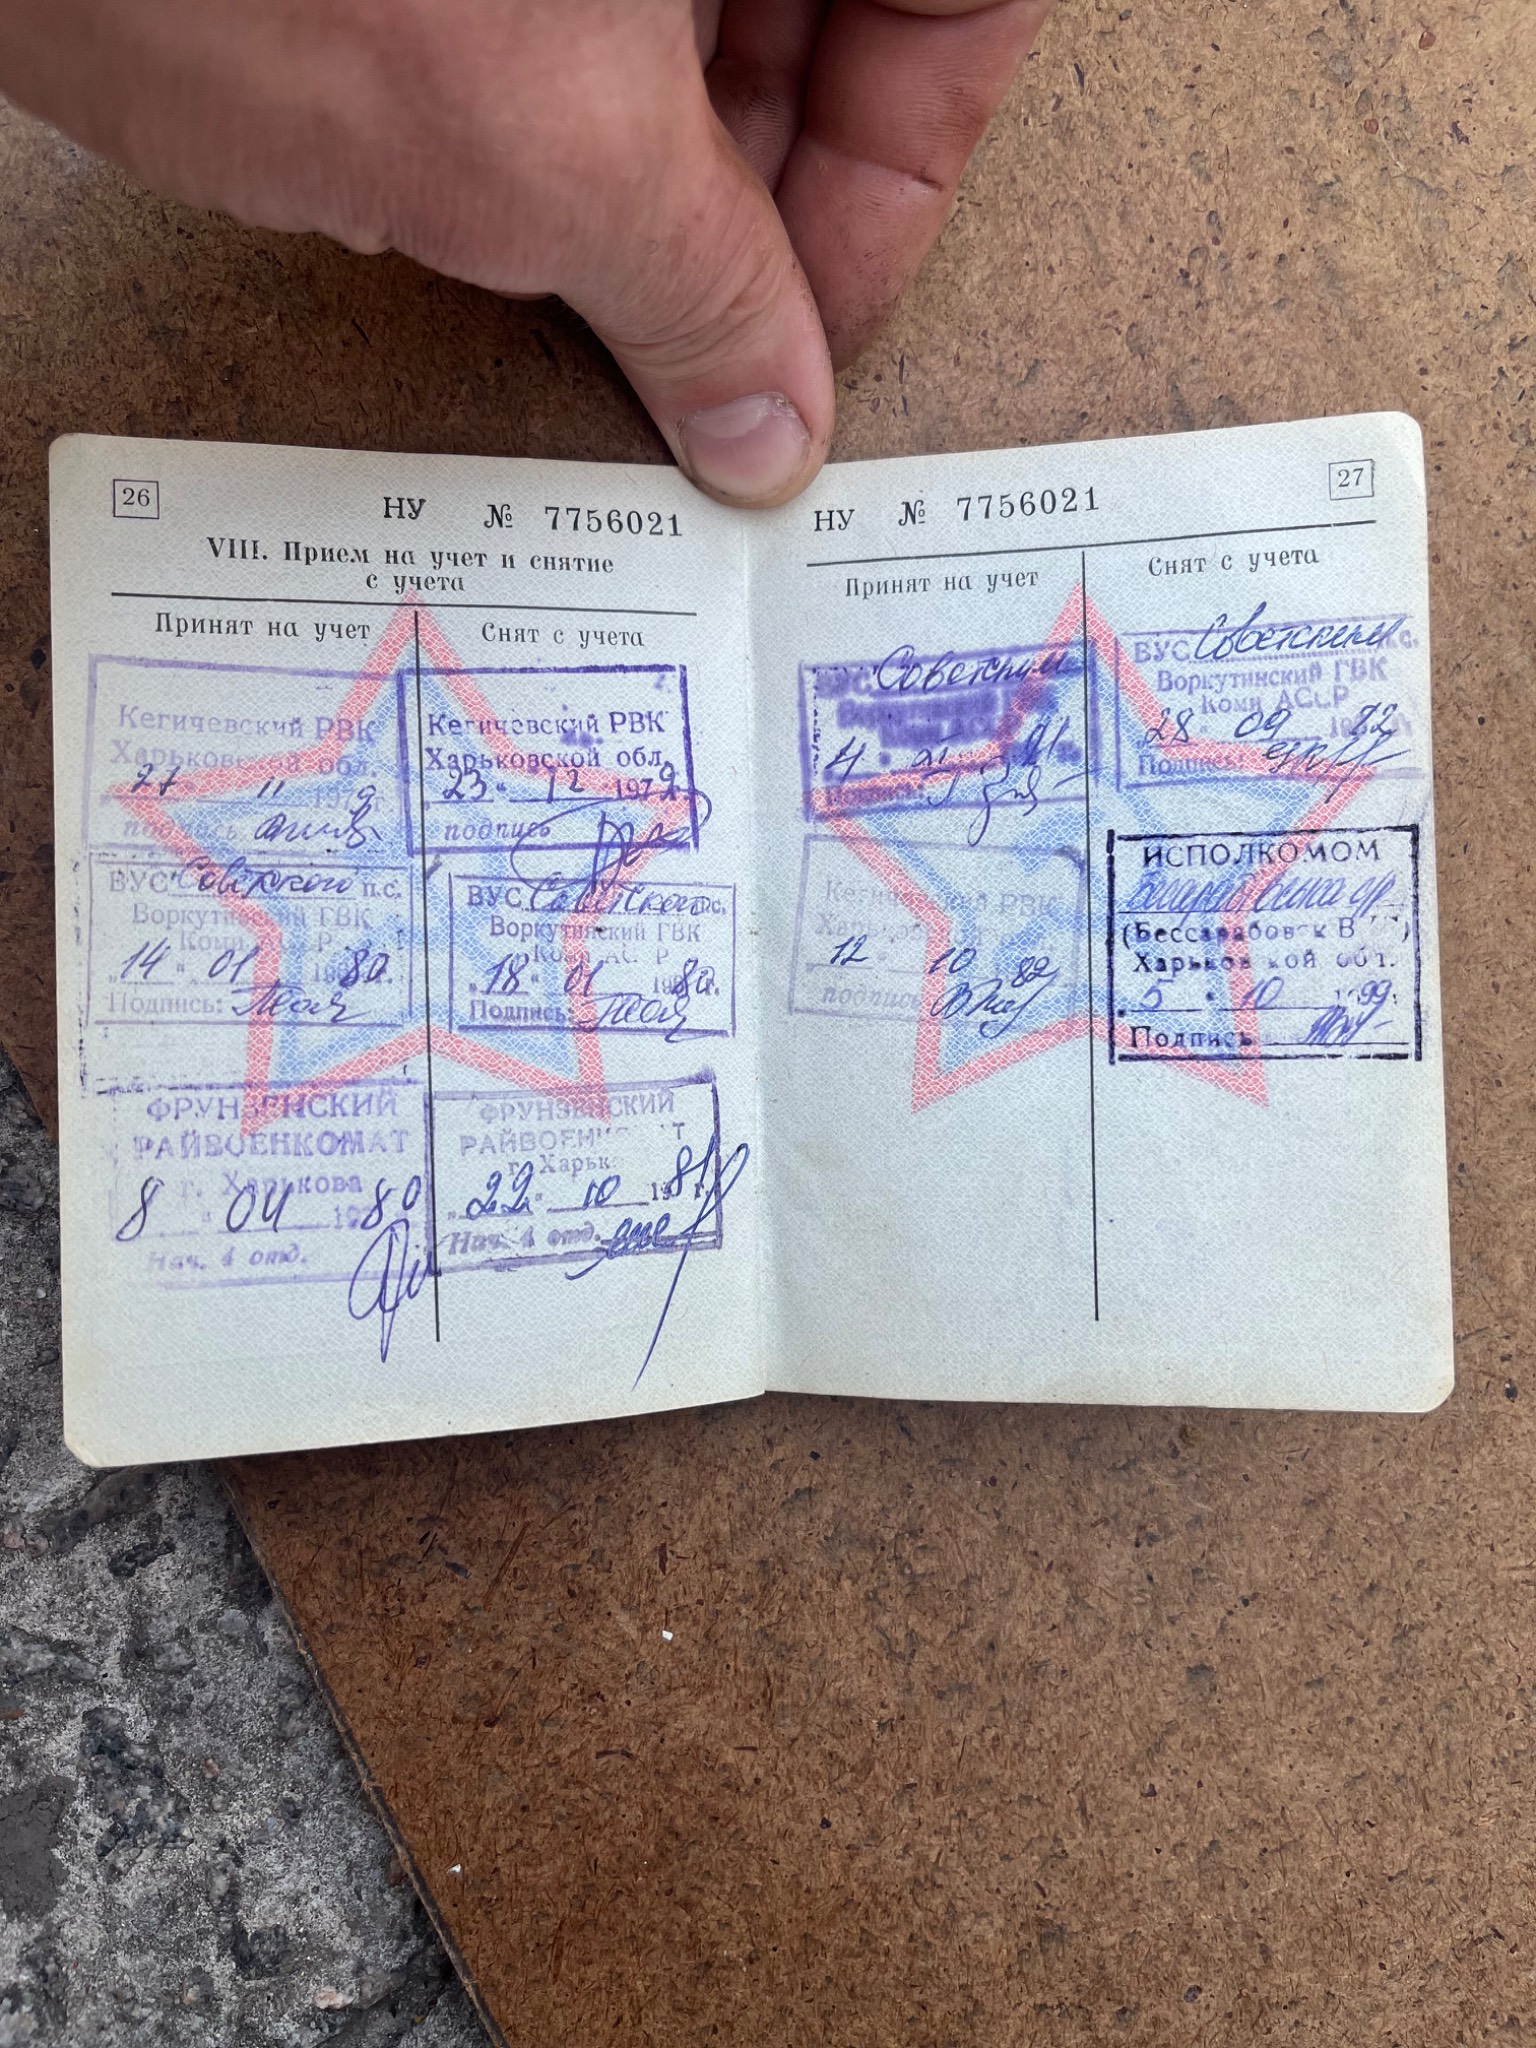 26
НУ № 7756021
VIII. Прием на учет и снятие
с учета
Принят на учет
Снят с учета
Кегичевский РВК
Харьковской обл.
27 11 1979 г.
подпись
Кегичевский РВК
Харьковской обл.
23 12 1979
подпись
ВУС Советского п.с.
Воркутинский ГВК
Коми АССР
14 01 1980 г.
Подпись:
ВУС Советского п.с.
Воркутинский ГВК
Коми АССР
18 01 1980 г.
Подпись:
ФРУНЗЕНСКИЙ
РАЙВОЕНКОМАТ
г. Харькова
8 04 80
Нач. 4 отд.
ФРУНЗЕНСКИЙ
РАЙВОЕНКОМАТ
г. Харьк
22 10 1981 г.
Нач. 4 отд.
27
НУ № 7756021
Принят на учет
Снят с учета
Советским
4 81
Подпись:
ВУС Советским п.с.
Воркутинский ГВК
Коми АССР
28 09 1982
Подпись:
Кегичевский РВК
Харьковской обл.
12 10 82
подпись
ИСПОЛКОМОМ
(Бессарабовск В )
Харьковской обл.
5 10 1999
Подпись